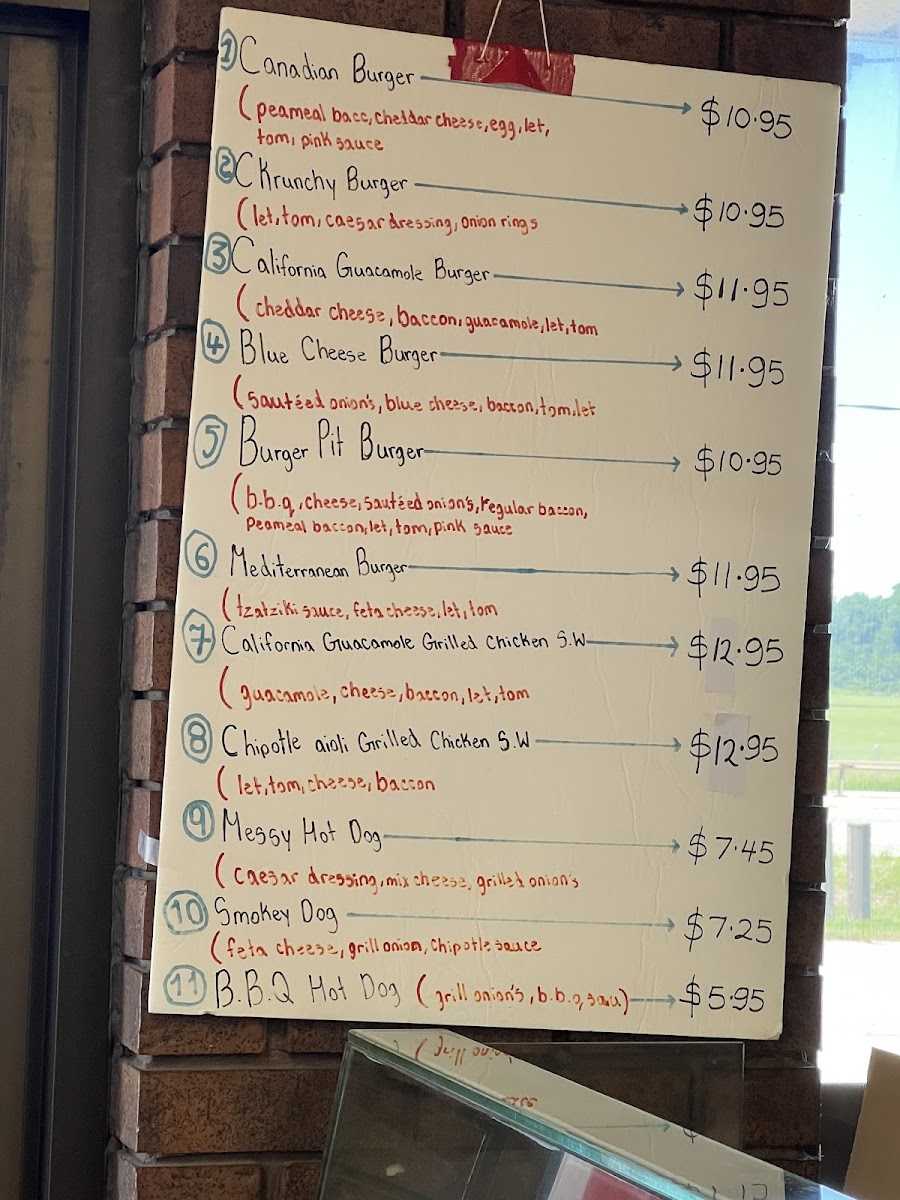 1 Canadian Burger $10.95
(peameal bacc, cheddar cheese, egg, let,
tom, pink sauce
2 CKrunchy Burger $10.95
(let, tom, caesar dressing, onion rings
3 California Guacamole Burger $11.95
(cheddar cheese, baccon, guacamole, let, tom
4 Blue Cheese Burger $11.95
(sautéed onion's, blue cheese, baccon, tom, let
5 Burger Pit Burger $10.95
(b.b.q, cheese, sautéed onion's, regular baccon,
Peameal baccon, let, tom, pink sauce
6 Mediterranean Burger $11.95
(tzatziki sauce, feta cheese, let, tom
7 California Guacamole Grilled Chicken S.W $12.95
(guacamole, cheese, baccon, let, tom
8 Chipotle aioli Grilled Chicken S.W $12.95
(let, tom, cheese, baccon
9 Messy Hot Dog $7.45
(caesar dressing, mix cheese, grilled onion's
10 Smokey Dog $7.25
(feta cheese, grill onion, chipotle sauce
11 B.B.Q Hot Dog (grill onion's, b.b.q, ) $5.95